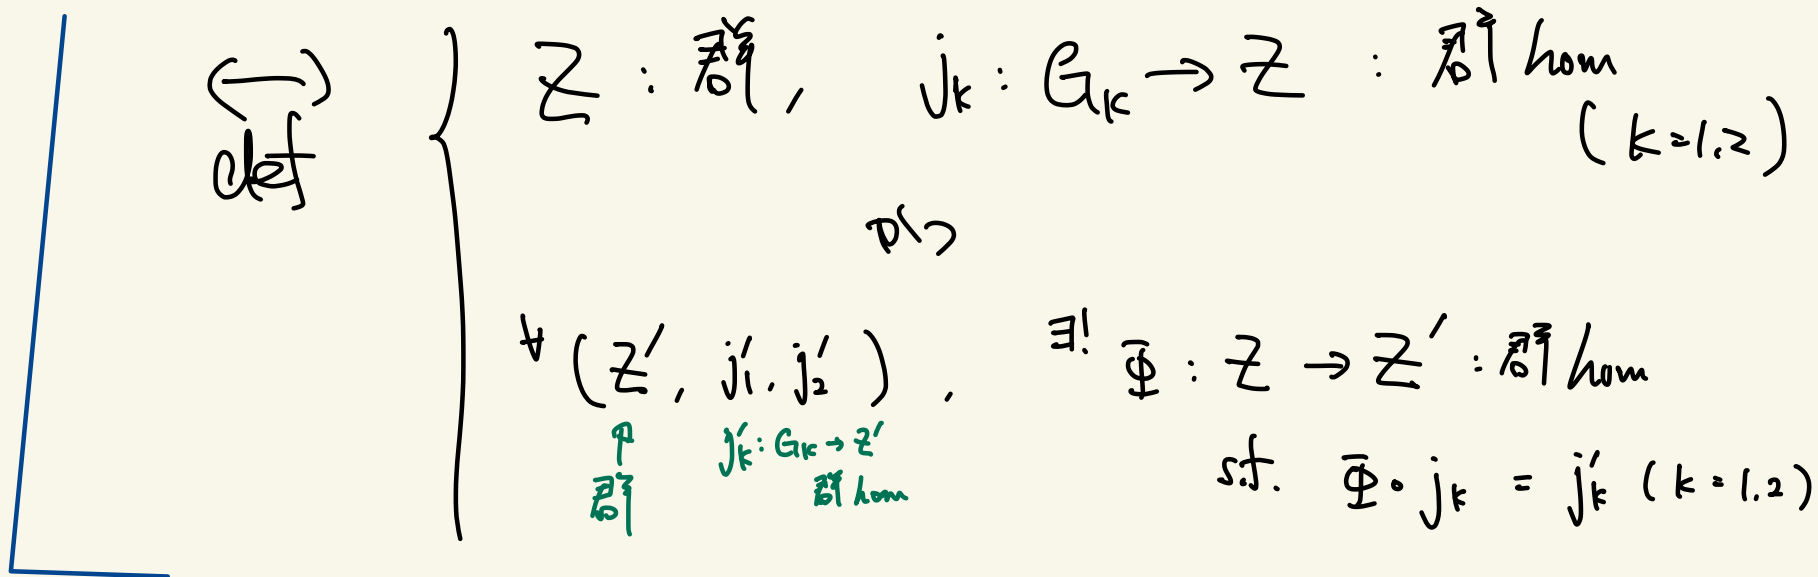 ⟺ def { Z : 群, jₖ : Gₖ → Z : 群 hom
(k=1.2)
かつ
∀(Z′, j₁′, j₂′), ∃! Φ : Z → Z′ : 群 hom
↑ 群 jₖ′ : Gₖ → Z′ 群 hom
s.t. Φ∘jₖ = jₖ′ (k=1.2)